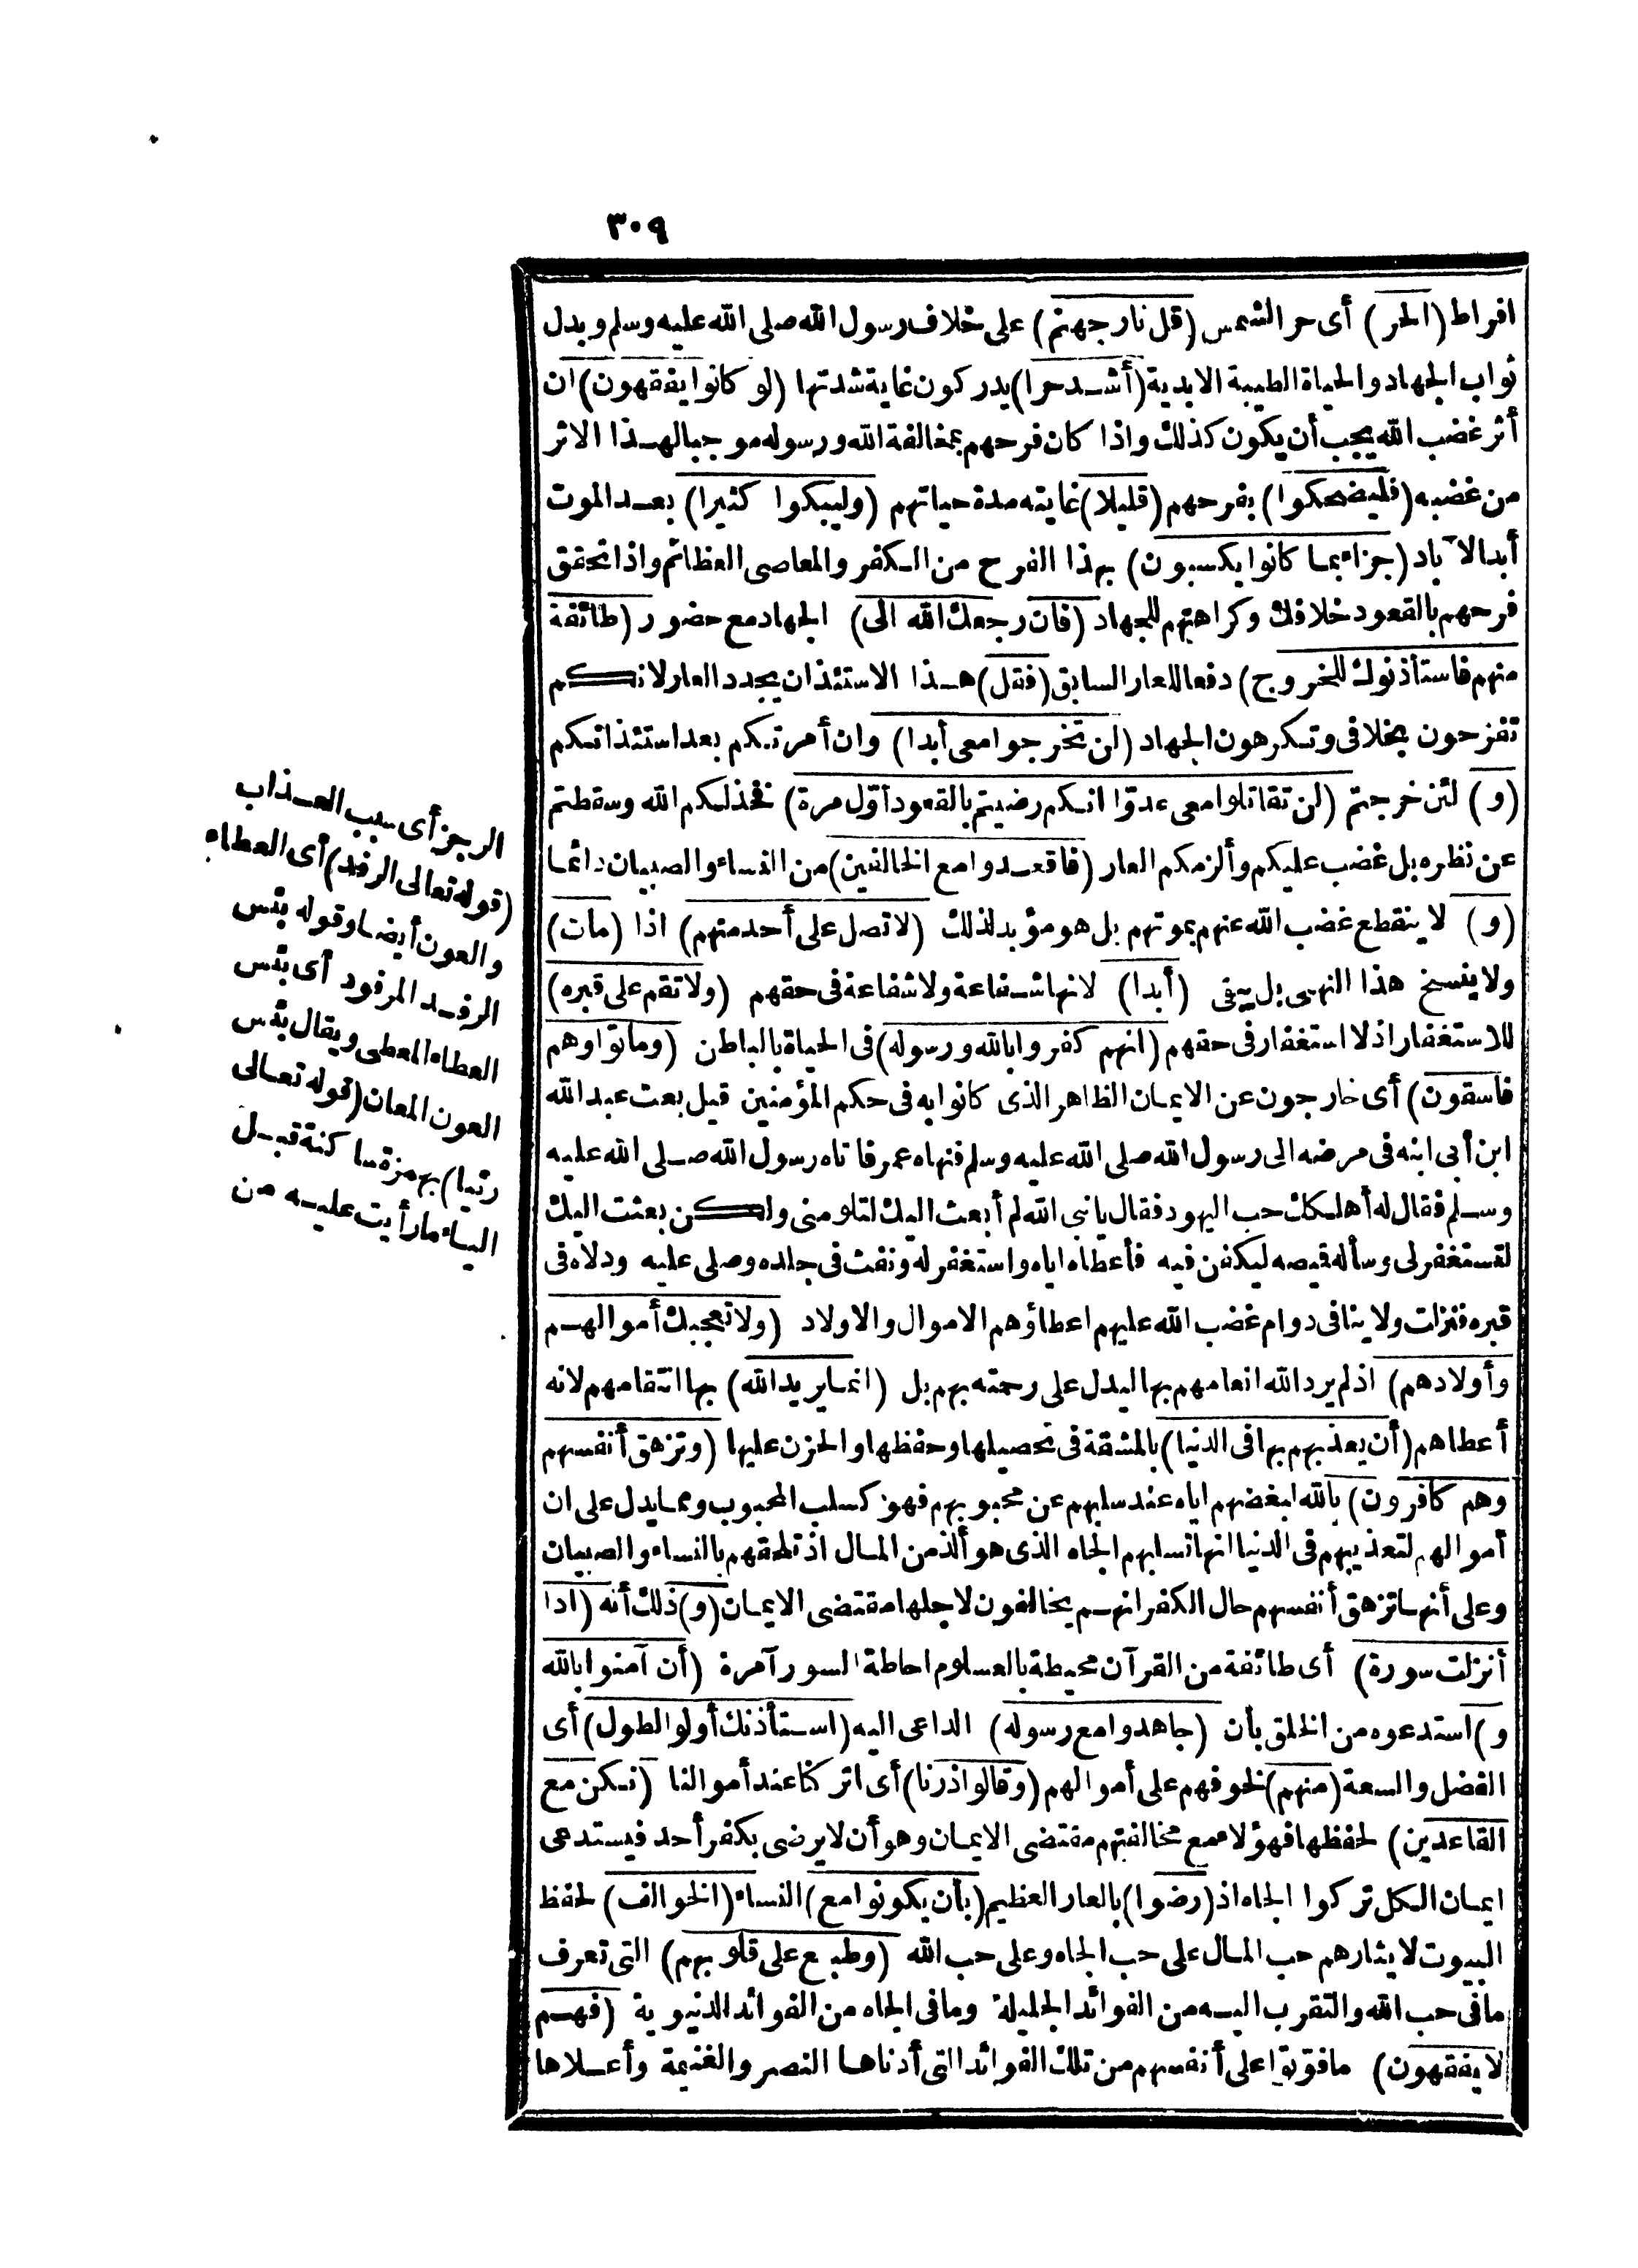 ٣٠٩
افراط (الحر) أى حر الشمس (قل نار جهنم) على خلاف رسول الله صلى الله عليه وسلم وبدل
ثواب الجهاد والحياة الطيبة الابدية (أشد حرا) يدركون غاية شدتها (لو كانوا يفقهون) ان
أثر غضب الله يجب أن يكون كذلك واذا كان فرحهم بمخالفة الله ورسوله موجبا لهذا الاثر
من غضبه (فليضحكوا) بفرحهم (قليلا) غايته مدة حياتهم (وليبكوا كثيرا) بعد الموت
أبد الآباد (جزاء بما كانوا يكسبون) بهذا الفرح من الكفر والمعاصى العظائم واذا تحقق
فرحهم بالقعود خلافك وكراهتهم للجهاد (فان رجعك الله الى) الجهاد مع حضور (طائفة
منهم فاستأذنوك للخروج) دفعا للعار السابق (فقل) هذا الاستئذان يجدد العار لانكم
تفرحون بخلافى وتكرهون الجهاد (لن تخرجوا معى أبدا) وان أمرتكم بعد استئذانكم
(و) لئن خرجتم (لن تقاتلوا معى عدوّا انكم رضيتم بالقعود أوّل مرة) فخذلكم الله وسقطتم
عن نظره بل غضب عليكم وألزمكم العار (فاقعدوا مع الخالفين) من النساء والصبيان دائما
(و) لا ينقطع غضب الله عنهم بموتهم بل هو مؤبد لذلك (لا تصل على أحد منهم) اذا (مات)
ولا ينسخ هذا النهى بل يبقى (أبدا) لانها شفاعة ولا شفاعة فى حقهم (ولا تقم على قبره)
للاستغفار اذ لا استغفار فى حقهم (انهم كفروا بالله ورسوله) فى الحياة بالباطن (وماتوا وهم
فاسقون) أى خارجون عن الايمان الظاهر الذى كانوا به فى حكم المؤمنين قيل بعث عبد الله
ابن أبى ابنه فى مرضه الى رسول الله صلى الله عليه وسلم فنهاه عمر فاتاه رسول الله صلى الله عليه
وسلم فقال له أهلكك حب اليهود فقال يا نبى الله لم أبعث اليك لتلومنى ولكن بعثت اليك
لتستغفر لى وسأله قميصه ليكفن فيه فأعطاه اياه واستغفر له ونفث فى جلده وصلى عليه ودلاه فى
قبره فنزلت ولا ينافى دوام غضب الله عليهم اعطاؤهم الاموال والاولاد (ولا تعجبك أموالهم
وأولادهم) اذ لم يرد الله انعامهم بها ليدل على رحمته بهم بل (انما يريد الله) بها انتقامهم لانه
أعطاهم (أن يعذبهم بها فى الدنيا) بالمشقة فى تحصيلها وحفظها والحزن عليها (وتزهق أنفسهم
وهم كافرون) بالله لبغضهم اياه عند سلبهم عن محبوبهم فهو كسلب المحبوب ومما يدل على ان
أموالهم لتعذيبهم فى الدنيا انها تسلبهم الجاه الذى هو ألذ من المال اذ تلحقهم بالنساء والصبيان
وعلى أنها تزهق أنفسهم حال الكفر انهم يخالفون لاجلها مقتضى الايمان (و) ذلك أنه (اذا
أنزلت سورة) أى طائفة من القرآن محيطة بالعلوم احاطة السور آمرة (أن آمنوا بالله
و) استدعوه من الخلق بأن (جاهدوا مع رسوله) الداعى اليه (استأذنك أولوا الطول) أى
الفضل والسعة (منهم) لخوفهم على أموالهم (وقالوا ذرنا) أى اتركنا عند أموالنا (نكن مع
القاعدين) لحفظها فهؤلاء مع مخالفتهم مقتضى الايمان وهو أن لا يرضى بكفر أحد فيستدعى
ايمان الكل تركوا الجاه اذ (رضوا) بالعار العظيم (بأن يكونوا مع) النساء (الخوالف) لحفظ
البيوت لايثارهم حب المال على حب الجاه وعلى حب الله (وطبع على قلوبهم) التى تعرف
ما فى حب الله والتقرب اليه من الفوائد الجليلة وما فى الجاه من الفوائد الدنيوية (فهم
لا يفقهون) ما فوّتوا على أنفسهم من تلك الفوائد التى أدناها النصر والغنيمة وأعلاها
الرجز أى سبب العذاب
(قوله تعالى الرفد) أى العطاء
والعون أيضا وقوله بئس
الرفد المرفود أى بئس
العطاء المعطى ويقال بئس
العون المعان (قوله تعالى
رئيا) بهمزة ساكنة قبل
الياء ما رأيت عليه من